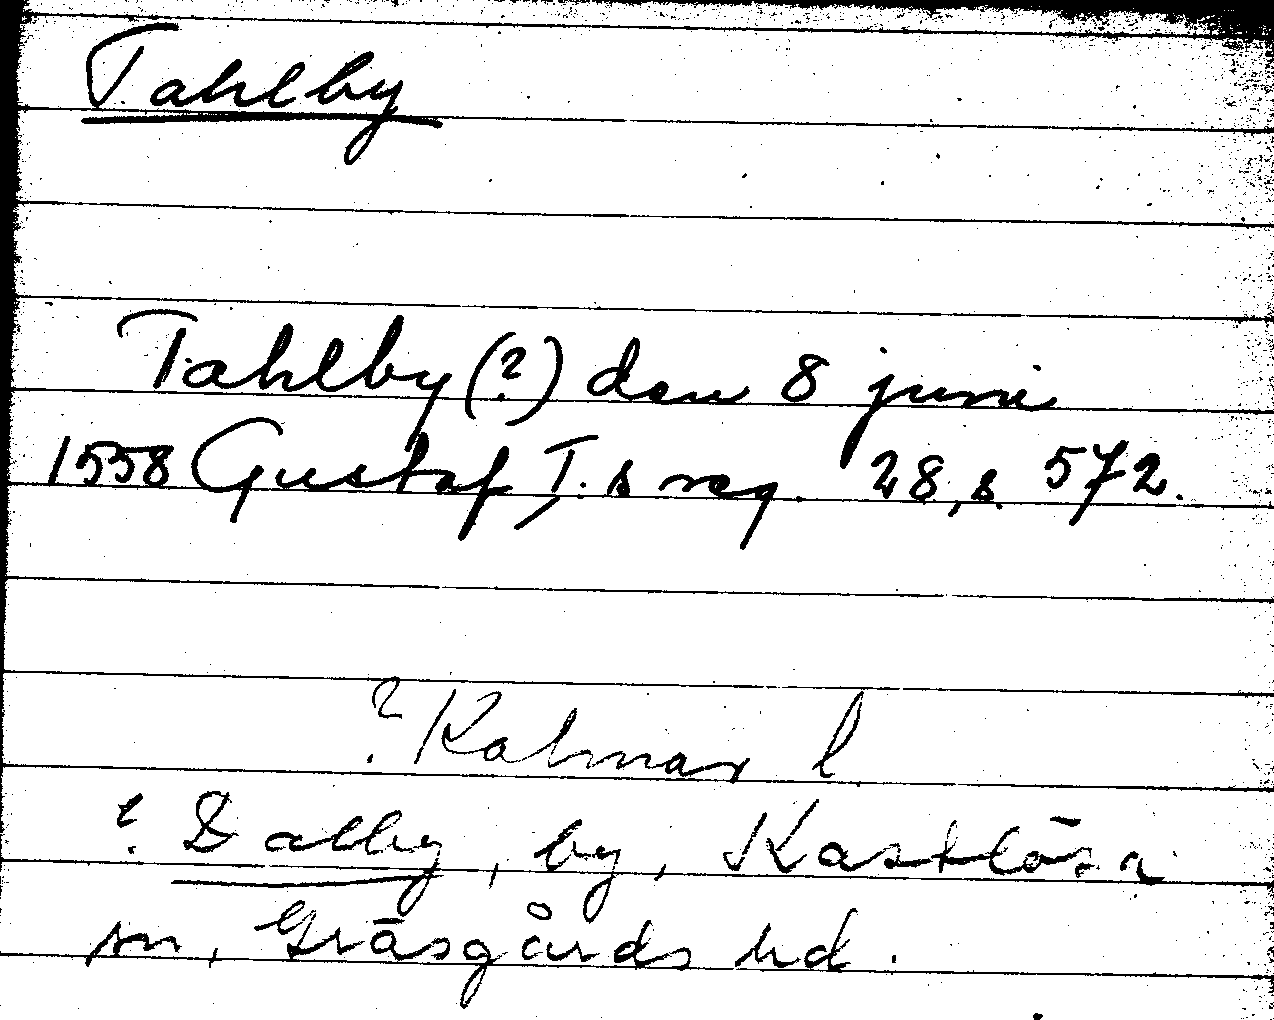 Tahlby
Tahlby (?) den 8 juni
1558 Gustaf I:s reg. 28, s. 572.
? Kalmar l
? Dalby, by, Kastlösa
sn, Gräsgårds hd.